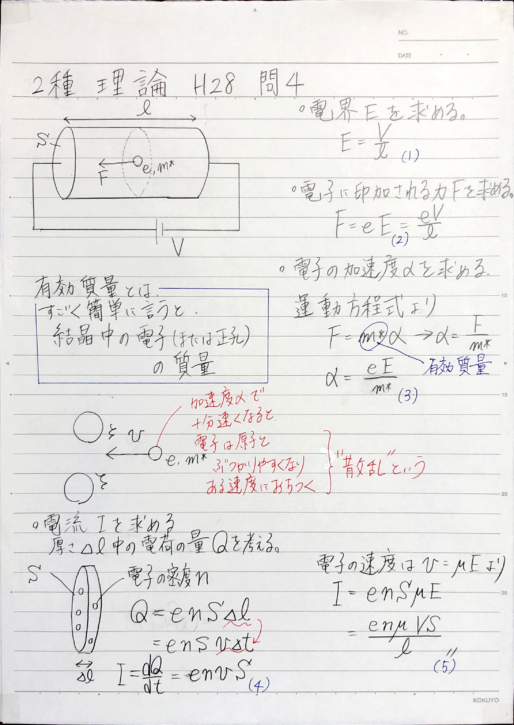 NO.
DATE
2種 理論 H28 問4
l
S
F
e, m*
V
○電界Eを求める。
E = V/l (1)
○電子に印加される力Fを求める。
F = eE = eV/l
(2)
○電子の加速度αを求める.
運動方程式より
F = m*α → α = F/m*
有効質量
α = eE/m* (3)
有効質量とは、
すごく簡単に言うと.
結晶中の電子(または正孔)
の質量
v
e, m*
加速度αで
十分速くなると.
電子は原子と
ぶつかりやすくなり
ある速度におちつく
"散乱"という
○電流Iを求める
厚さΔl中の電荷の量Qを考える。
S
電子の密度n
Δl
Q = enSΔl
= enSvΔt
I = dQ/dt = envS
(4)
電子の速度は v = μE より
I = enSμE
= enμVS/l 〃
(5)
KOKUYO